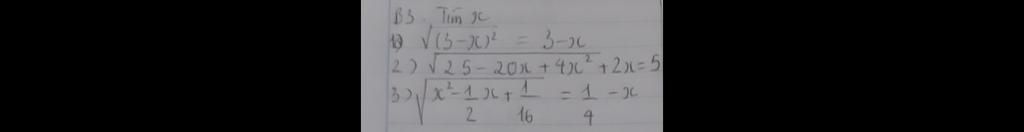 B3. Tìm x
1) √(3-x)² = 3-x
2) √25-20x+4x² + 2x=5
3) √x²-1/2x+1/16 = 1/4-x